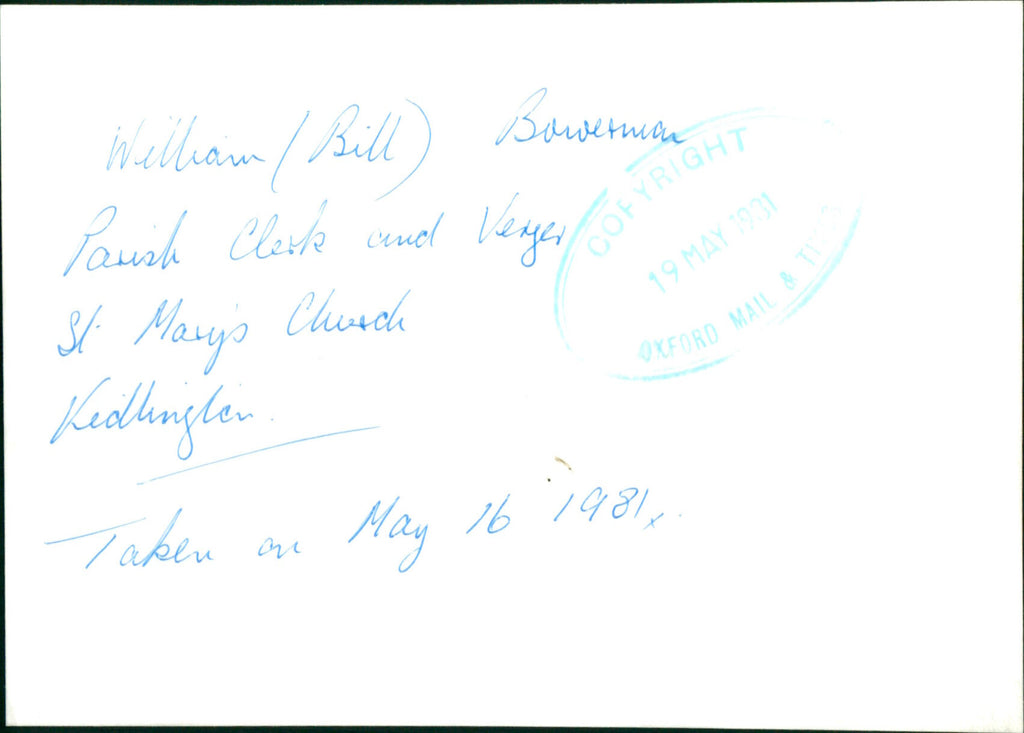 William (Bill) Bowerman
Parish Clerk and Verger
St. Mary's Church
Kidlington.
Taken on May 16 1981.
COPYRIGHT
19 MAY 1981
OXFORD MAIL & TIMES